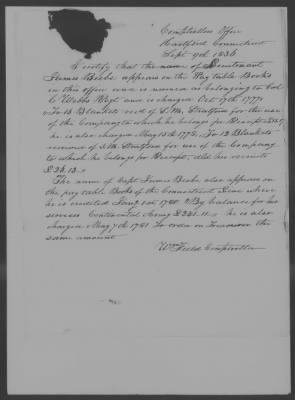 Comptrollers Office
Hartford Connecticut
Sept 9th 1836
I certify that the name of Lieutenant
James Beebe appears on the Pay table Books
in this office and is named as belonging to Col
C Webbs Regt and is charged Oct 17th 1777
To 13 Blankets recd of for the use
of the Company to which he belongs for Receipt
he is also charged May 15th 1778, To 13 Blankets
received of for use of the Company
to which he belongs for Receipt, and his receipts
£26.13.
The name of Capt James Beebe also appears on
the pay table Books of the Connecticut Line where
he is credited Jany 1st 1780 By balance for his
services Continental Army £241.11. he is also
charged May 7th 1781 To order on Treasurer the
same amount
Wm Field Comptroller